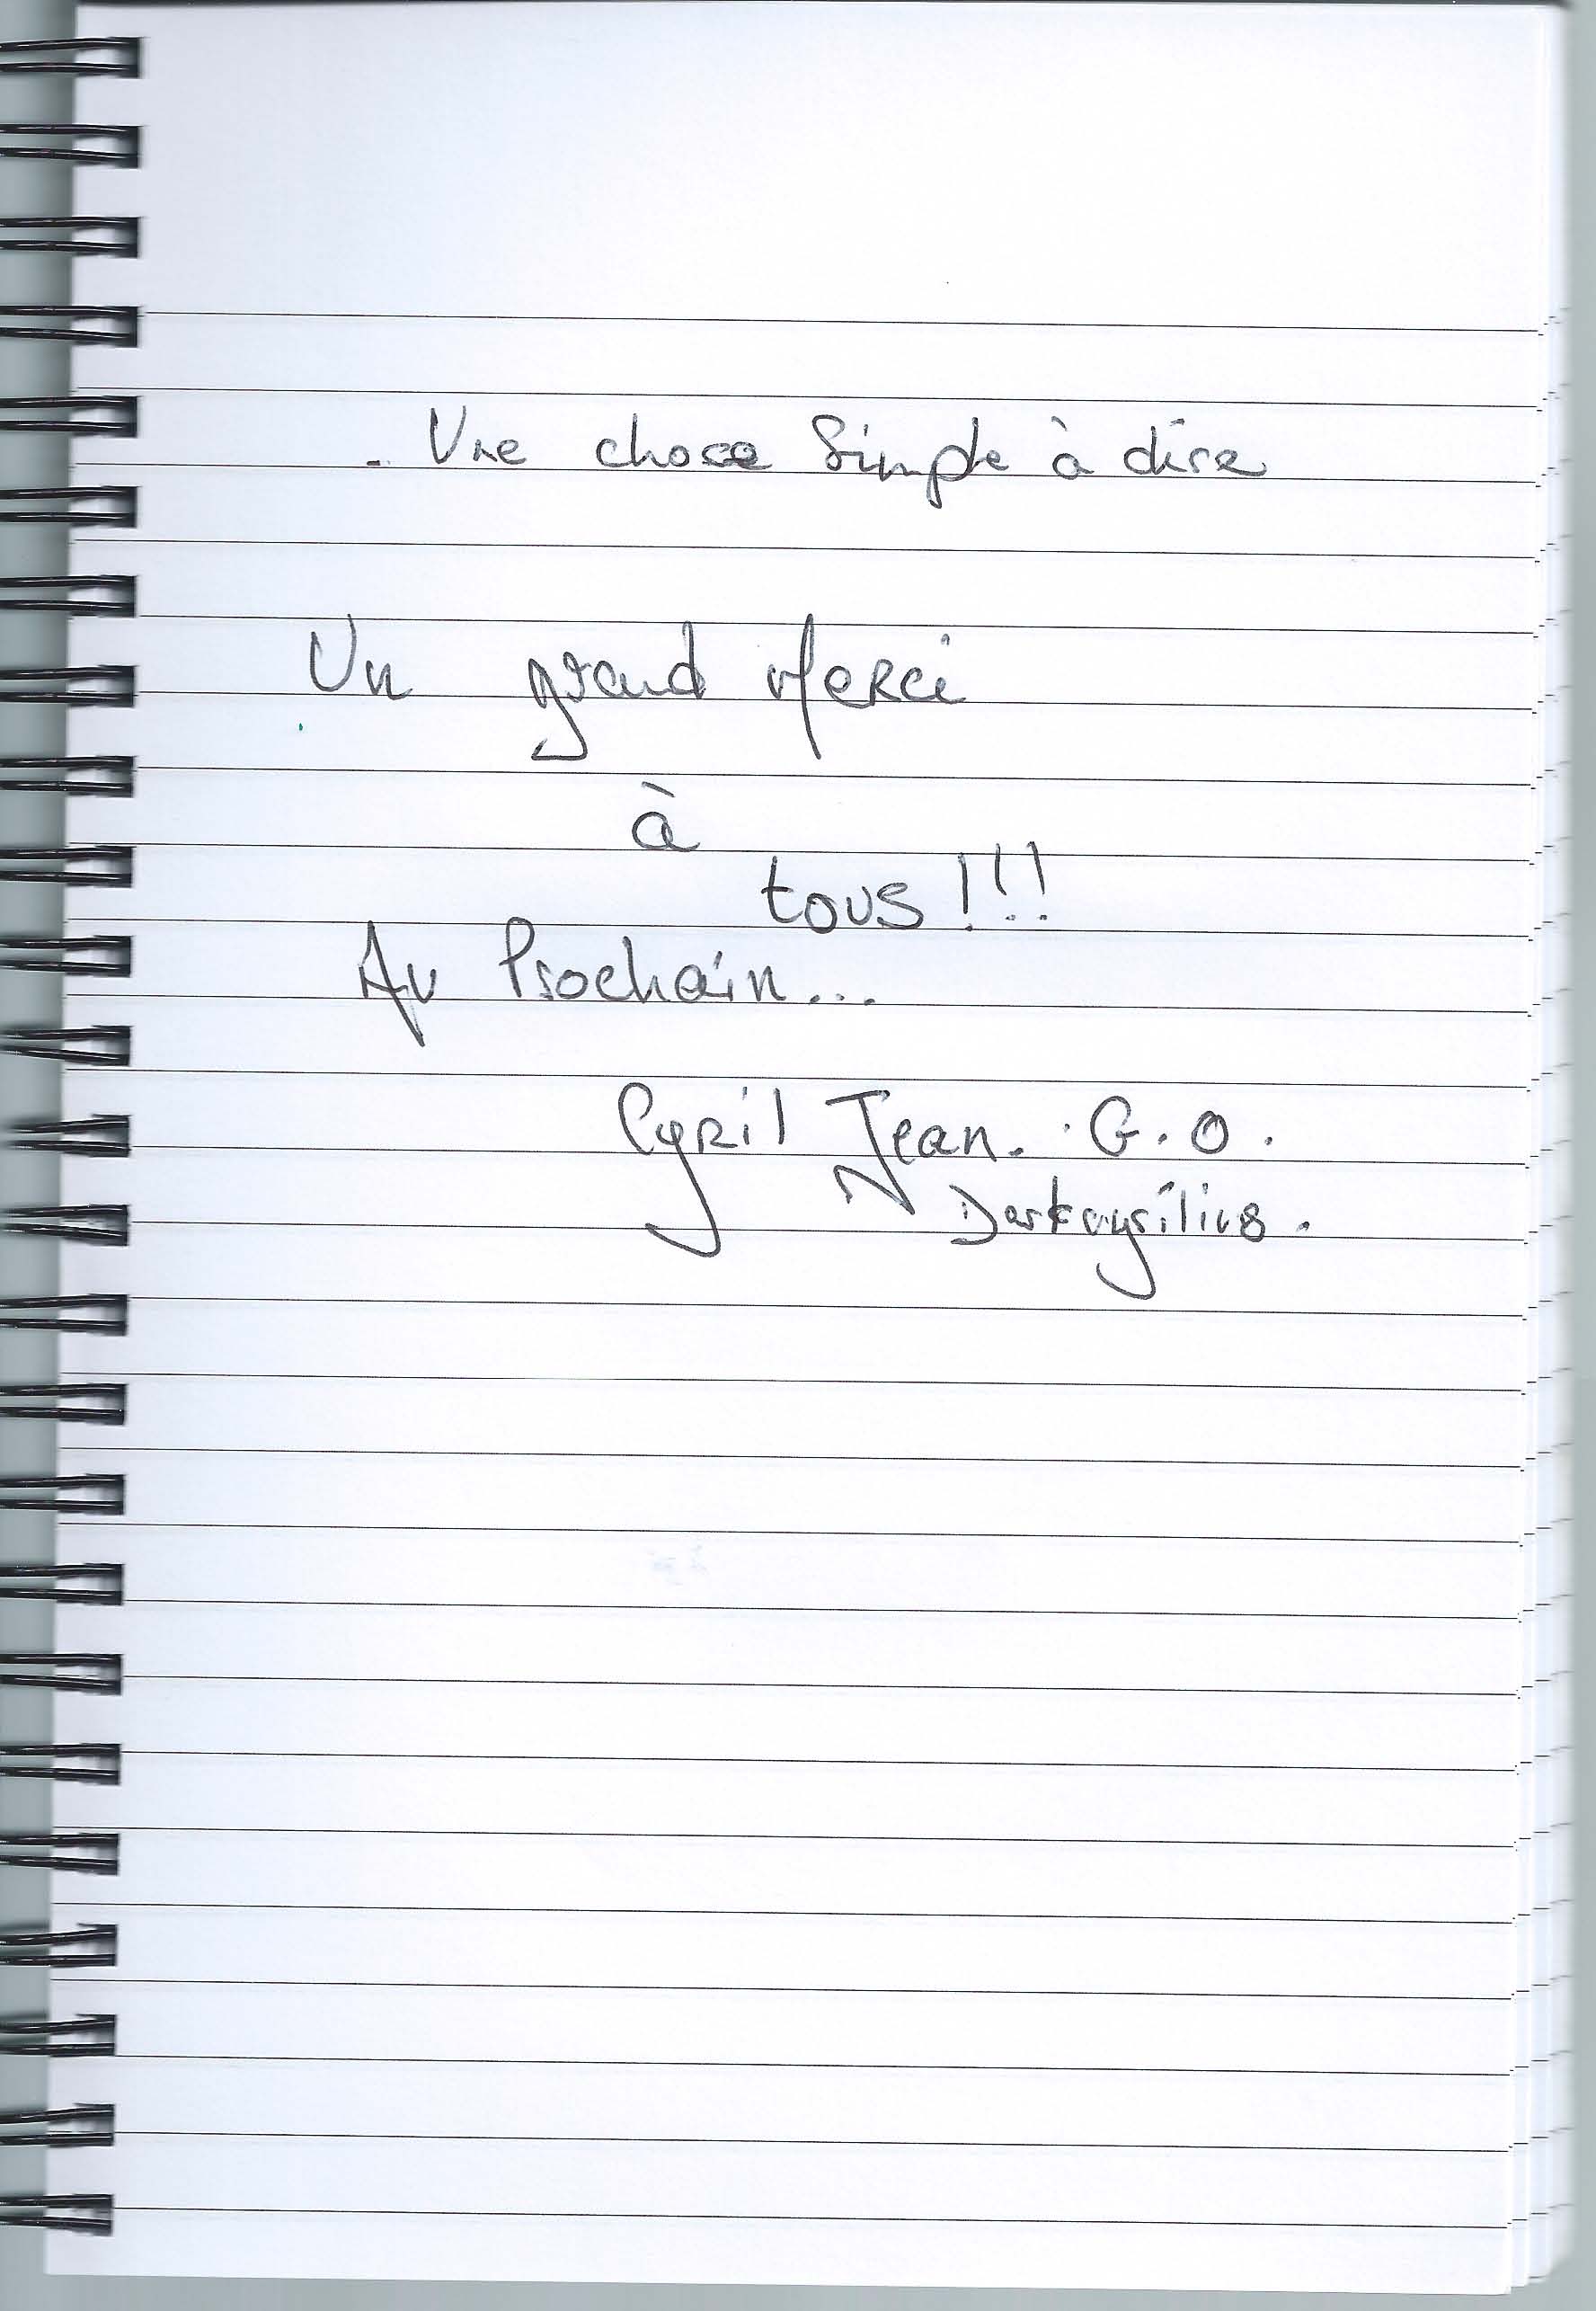 . Une chose Simple à dire
Un grand Merci
à
tous !!!
Au Prochain...
Cyril Jean. . G. O.
Darkcyrilius.